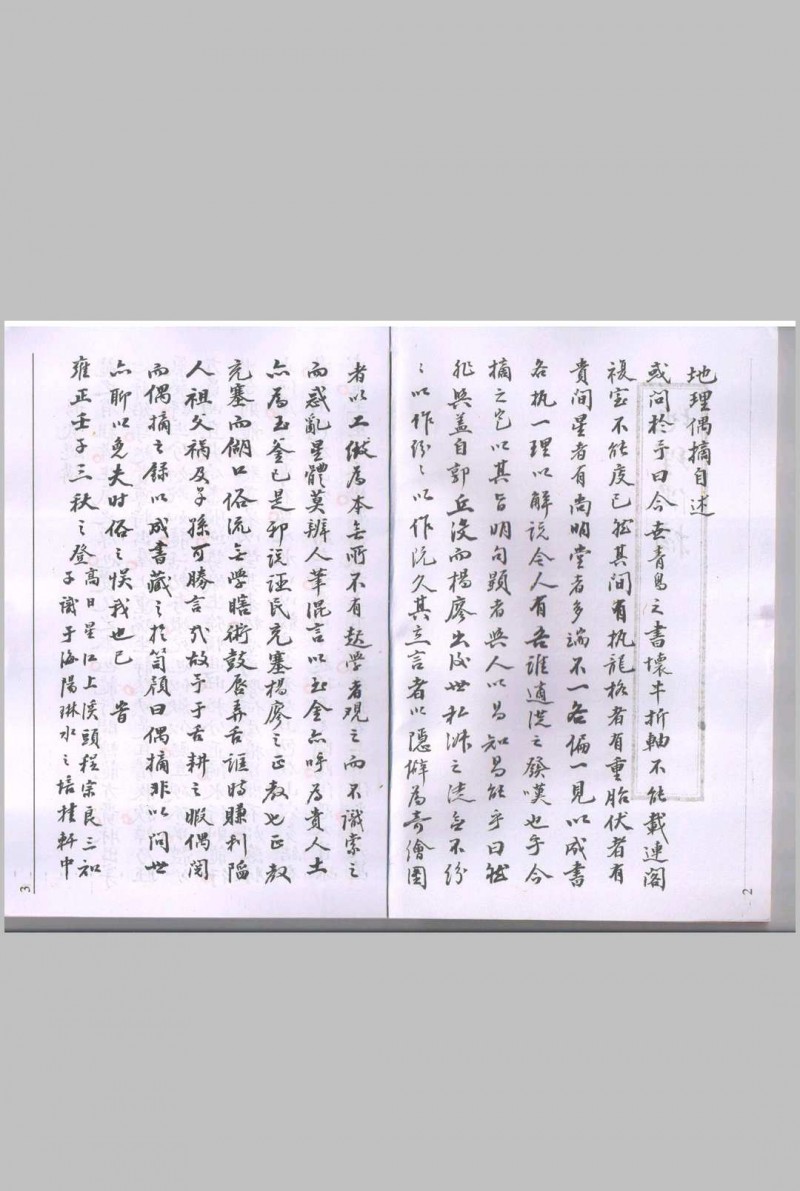 地理偶摘自述
或问扵予曰今世青鳥之書壞牛折軸不能載連閣
複室不能度已然其间有执龍格者有重胎伏者有
貴间星者有尚明堂者多端不一各偏一見以成書
各执一理以解说令人有吾誰適從之發嘆也乎今
摘之定以其旨明句顯者與人以易知易能乎曰然
非與盖自郭丘没而楊廖出後世私淑之徒無不纷
〻以作纷〻以作阮久其立言者以隱僻為奇繪图
者以工俊為本無所不有趁學者观之而不識索之
而惑亂星體莫辨人華混言以玉金亦呼為貴人土
亦為玉釜已是邪说誣民充塞楊廖之正教也正教
充塞而餬口俗流無學瞎術鼓唇弄舌誑時賺利陷
人祖父祸及子孫可勝言哉故予于舌耕之暇偶阅
而偶摘之录以成書藏之於笥顏曰偶摘非以问世
亦聊以免夫时俗之悮我也已 旹
雍正壬子三秋之登高日星江上溪頭程宗良三和
子識于海陽琳水之培桂軒中
2
3